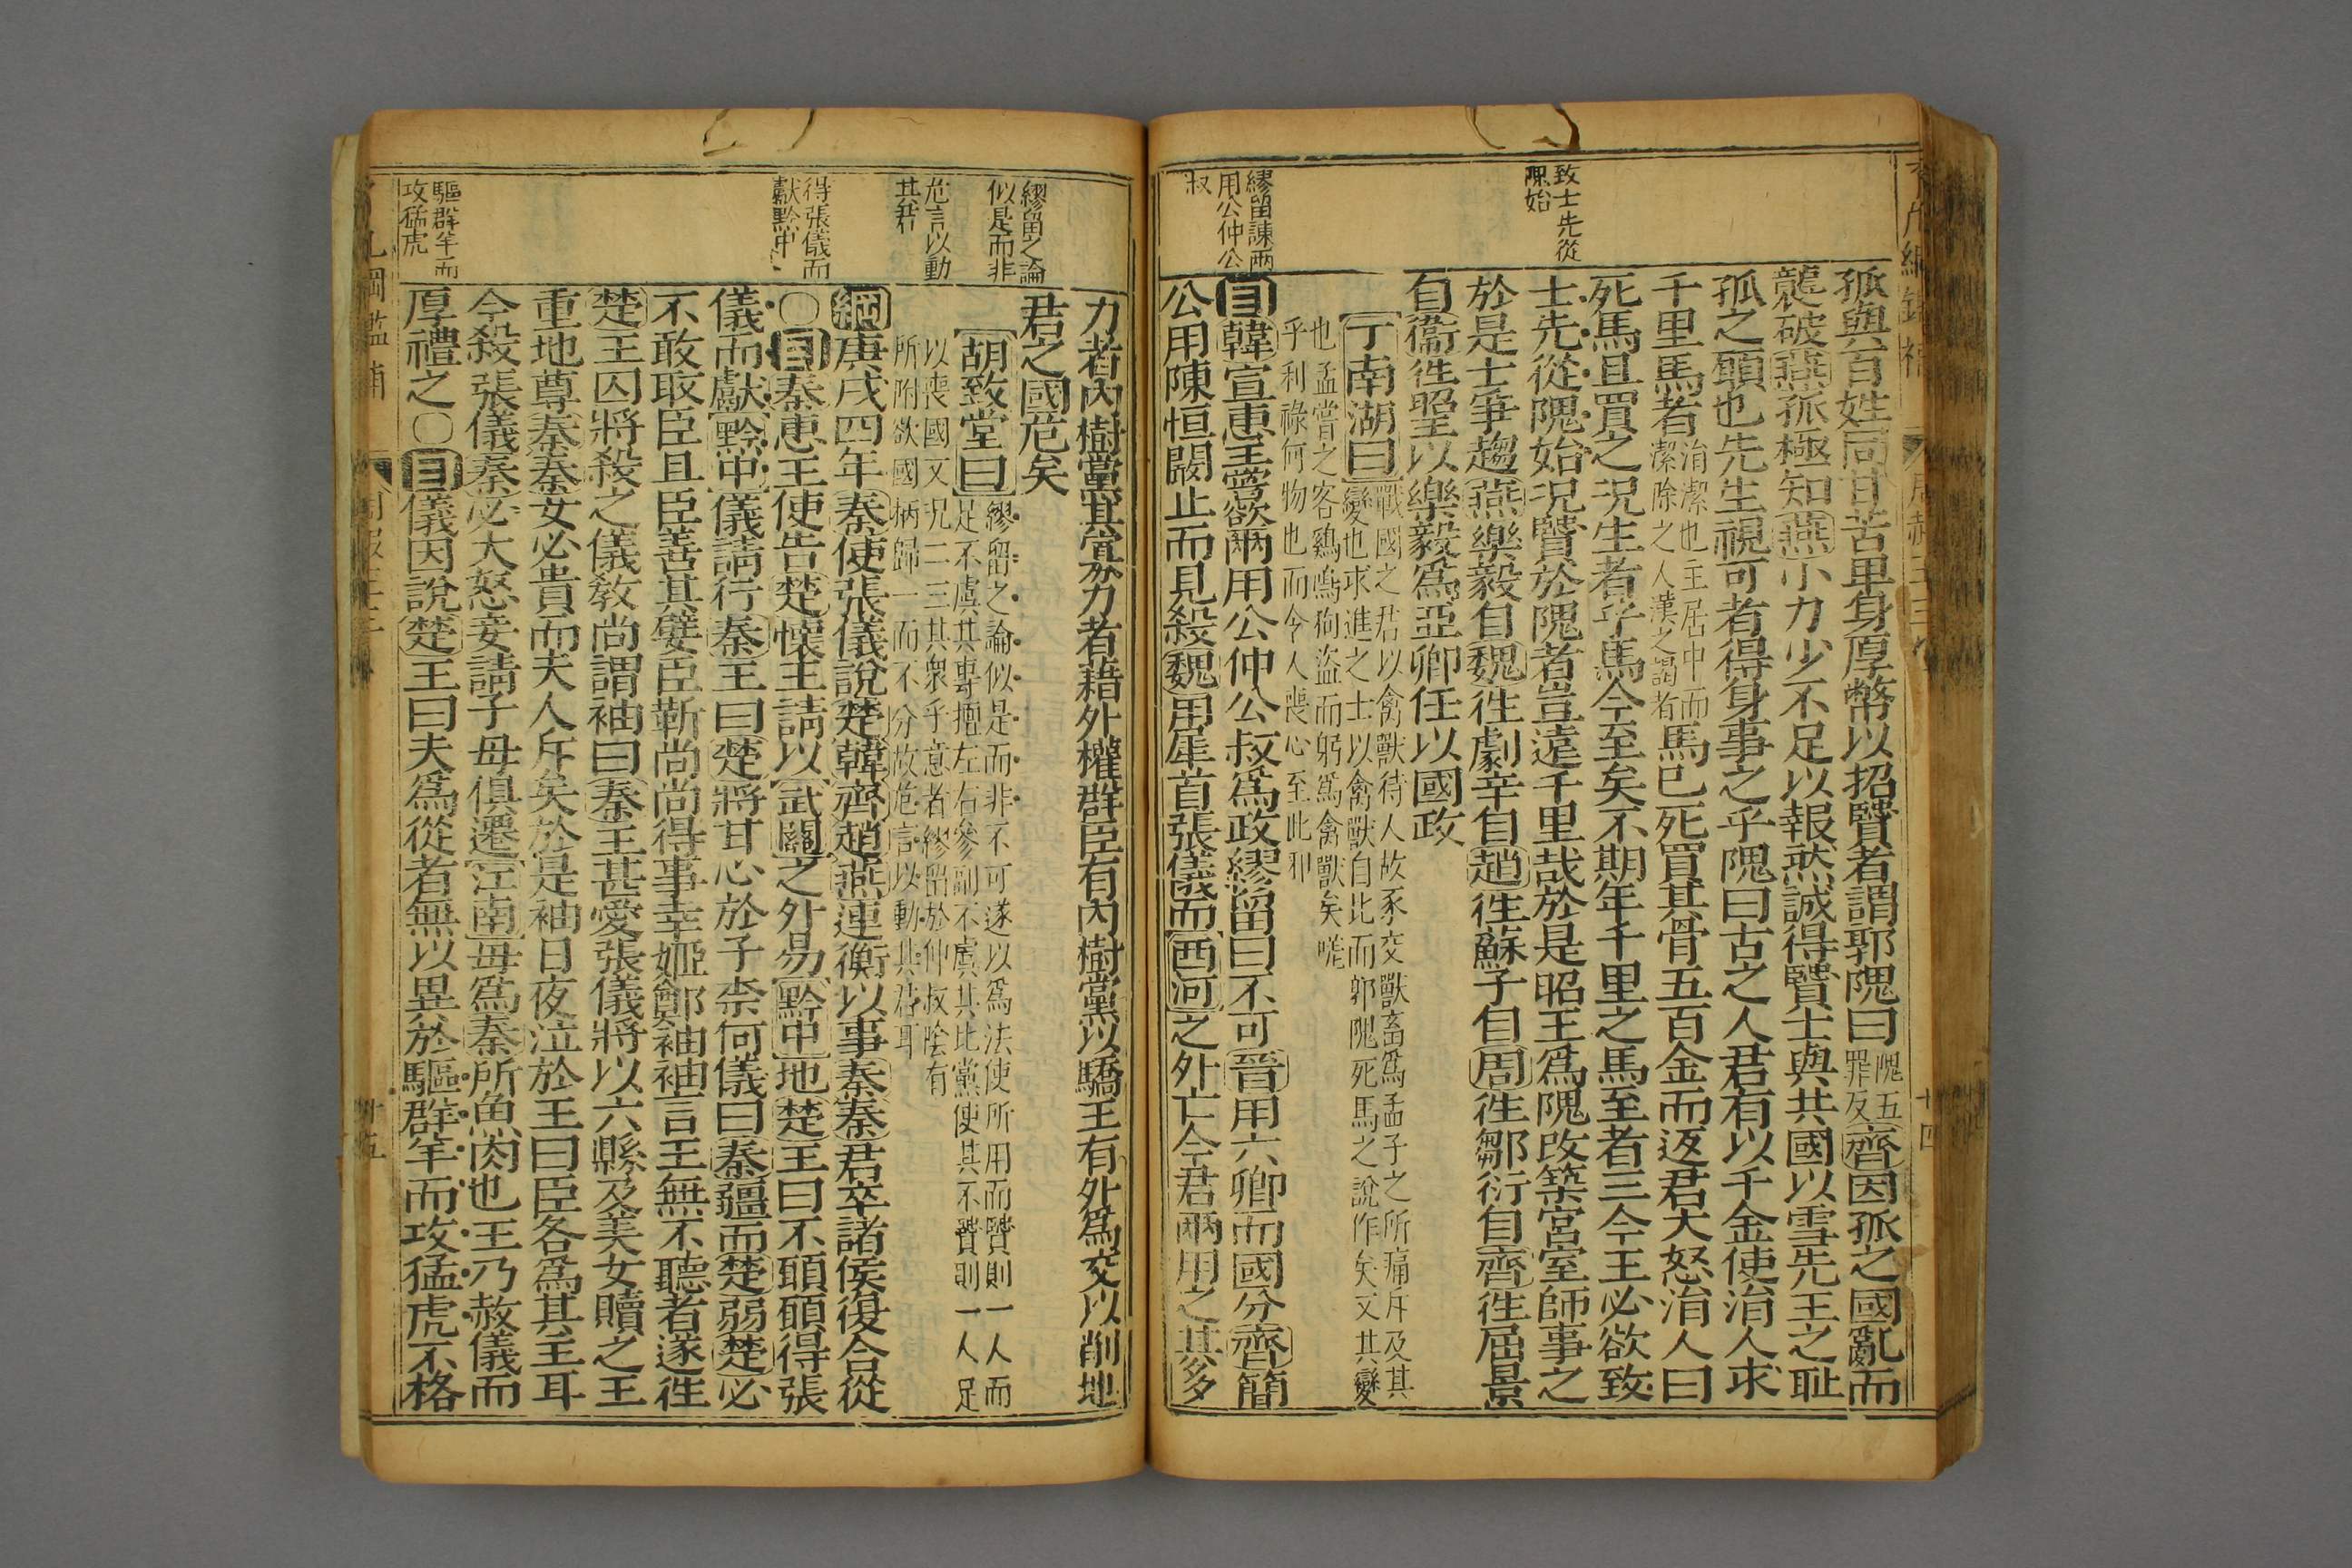 致士先從
隗始
繆留諫兩
用公仲公
叔
孤與百姓同甘苦卑身厚幣以招賢者謂郭隗曰隗五罪反齊因孤之國亂而
襲破燕孤極知燕小力少不足以報然誠得賢士與共國以雪先王之恥
孤之願也先生視可者得身事之乎隗曰古之人君有以千金使涓人求
千里馬者涓潔也主居中而潔除之人漢之謁者馬已死買其骨五百金而返君大怒涓人曰
死馬且買之況生者乎馬今至矣不期年千里之馬至者三今王必欲致
士先從隗始況賢於隗者豈遠千里哉於是昭王爲隗改築宮室師事之
於是士爭趨燕樂毅自魏徃劇辛自趙徃蘇子自周徃鄒衍自齊徃屈景
自衞徃昭王以樂毅爲亞卿任以國政
丁南湖曰戰國之君以禽獸待人故豕交獸畜爲孟子之所痛斥及其
變也求進之士以禽獸自比而郭隗死馬之說作矣又其變
也孟嘗之客鷄鳴狗盜而躬爲禽獸矣嗟
乎利祿何物也而令人喪心至此耶
目韓宣惠王嘗欲兩用公仲公叔爲政繆留曰不可晉用六卿而國分齊簡
公用陳恒闞止而見殺魏用犀首張儀而西河之外亡今君兩用之其多
繆留之論
似是而非
危言以動
其君
得張儀而
獻黔中
驅群羊而
攻猛虎
力者內樹黨其寡力者藉外權群臣有內樹黨以驕主有外爲交以削地
君之國危矣
胡致堂曰繆留之論似是而非不可遂以爲法使所用而賢則一人而
足不虞其專擅左右參副不虞其比黨使其不賢則一人足
以喪國又況二三其衆乎意者繆留於仲叔陰有
所附欲國柄歸一而不分故危言以動其君耳
綱庚戌四年秦使張儀說楚韓齊趙燕連衡以事秦秦君卒諸侯復合從
○目秦惠王使告楚懷王請以武關之外易黔中地楚王曰不願願得張
儀而獻黔中儀請行秦王曰楚將甘心於子柰何儀曰秦疆而楚弱楚必
不敢取臣且臣善其嬖臣靳尚尚得事幸姬鄭袖袖言王無不聽者遂徃
楚王囚將殺之儀敎尚謂袖曰秦王甚愛張儀將以六縣及美女贖之王
重地尊秦秦女必貴而夫人斥矣於是袖日夜泣於王曰臣各爲其主耳
今殺張儀秦必大怒妾請子母俱遷江南毋爲秦所魚肉也王乃赦儀而
厚禮之○目儀因說楚王曰夫爲從者無以異於驅群羊而攻猛虎不格